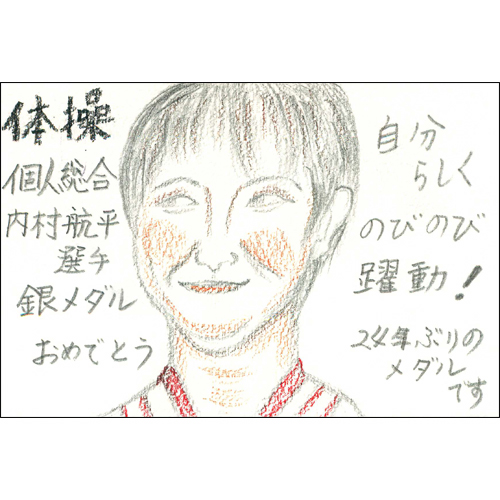 体操
個人総合
内村航平
選手
銀メダル
おめでとう
自分
らしく
のびのび
躍動!
24年ぶりの
メダル
です